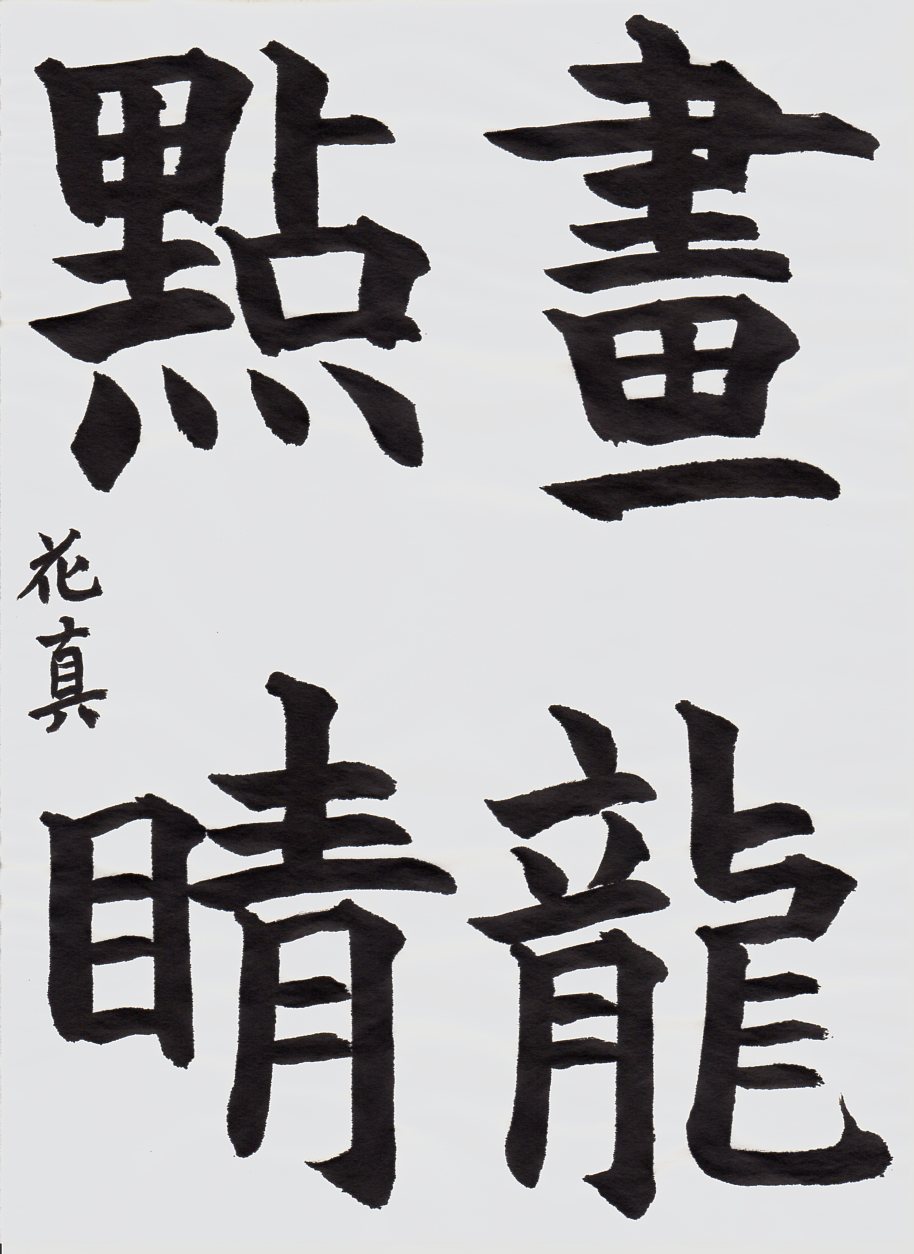 畫龍
點睛
花真